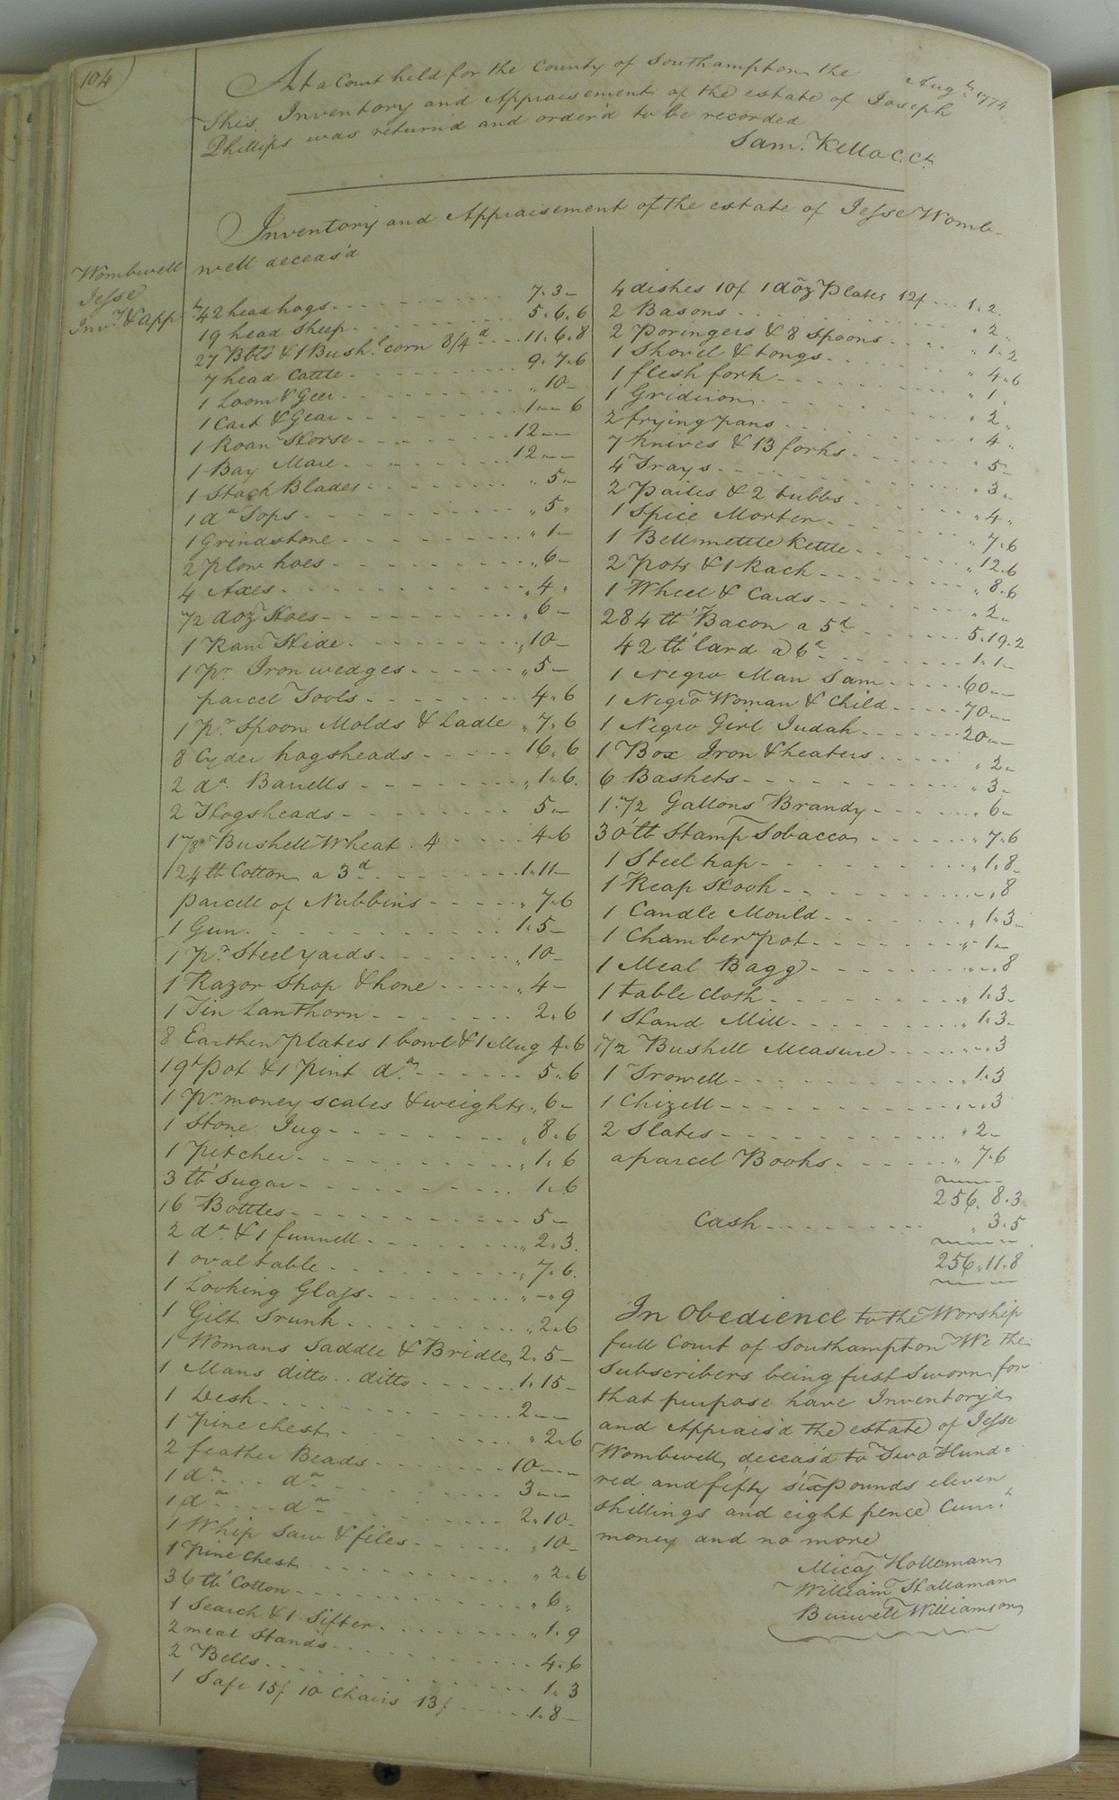 104
At a Court held for the County of Southampton the Augt. 1774
This Inventory and Appraisement of the estate of Joseph
Phillips was return'd and order'd to be recorded
Sam. Kello C.Ct.
Inventory and Appraisement of the estate of Jesse Womb-
well deceas'd
Wombwell
Jesse
Inv.y & App
42 head hogs 7.3-
19 head Sheep 5.6.6
27 Bbls & 1 Bush.l corn 8/4d 11.6.8
7 head Cattle 9.7.6
1 Loom & Geer " 10-
1 Cart & Gear 1--6
1 Roan Horse 12--
1 Bay Mare 12--
1 Stack Blades " 5-
1 do Tops " 5"
1 Grindstone " 1-
2 plow hoes " 6-
4 Axes " 4"
1/2 doz Hoes " 6-
1 Ram Hide " 10-
1 pr. Iron wedges " 5-
parcel Tools 4.6
1 pr. Spoon Molds & Ladle " 7.6
8 Cyder hogsheads 16.6
2 do. Barrells " 1.6
2 Hogsheads 5-
1 7/8 Bushell Wheat . 4 4.6
124 lb Cotton a 3d 1.11-
parcell of Nubbins " 7.6
1 Gun 1.5-
1 pr. Steelyards " 10-
1 Razor Strop & hone " 4-
1 Tin Lanthorn 2.6
8 Earthen plates 1 bowl & 1 Mug 4.6
1 qt Pot & 1 pint do. 5.6
1 pr. money scales & weights " 6-
1 Stone Jug " 8.6
1 pitcher " 1.6
3 lb Sugar 1.6
16 Bottles 5-
2 do. & 1 funnell " 2.3
1 oval table " 7.6
1 Looking Glass " - " 9
1 Gilt Trunk " 2.6
1 Womans Saddle & Bridle 2.5-
1 Mans ditto .. ditto 1.15-
1 Desk 2--
1 pine chest " 2.6
2 feather Beads 10---
1 do. do. 3--
1 do. do. 2.10-
1 Whip Saw & files " 10-
1 pine chest " 2.6
36 lb Cotton " 6"
1 Search & 1 Sifter " 1.9
2 meal Stands 4.6
2 Bells 1.3
1 Safe 15/ 10 Chairs 13/ 1.8-
4 dishes 10/ 1 doz plates 12/ 1.2
2 Basons " 2"
2 Poringers & 8 Spoons " 1.2
1 Shovel & tongs " 4.6
1 flesh fork " 1"
1 Gridiron " 2"
2 frying pans " 4"
7 knives & 13 forks " 5-
4 Trays " 3"
2 pailes & 2 tubbs " 4"
1 Spice Morter " 7.6
1 Bellmettle Kettle " 12.6
2 pots & 1 Rack " 8.6
1 Wheel & Cards " 2"
284 lb Bacon a 5d 5.19.2
42 lb Lard a 6d 1.1-
1 Negro Man Sam 60--
1 Negro Woman & Child 70--
1 Negro Girl Judah 20--
1 Box Iron & heaters " 2"
6 Baskets " 3"
1 1/2 Gallons Brandy " 6-
30 lb Stamp Tobacco " 7.6
1 Steel trap " 1.8-
1 Reap Hook - " 8
1 Candle Mould " 1.3-
1 Chamber pot " 1-
1 Meal Bagg - " 8
1 table cloth " 1.3-
1 Hand Mill " 1.3-
1/2 Bushell Measure - " 3
1 Trowell 1.3
1 Chizell " - " 3
2 Slates " 2-
a parcel Books " 7.6
256.8.3
Cash " 3.5
256.11.8
In Obedience to the Worship
full Court of Southampton We the
Subscribers being first Sworn for
that purpose have Inventory'd
and Apprais'd the estate of Jesse
Wombwell deceas'd to Two Hund=
red and fifty six pounds eleven
shillings and eight pence Curr.t
money and no more
Micaj Holleman
William Hallaman
Burwell Williamson